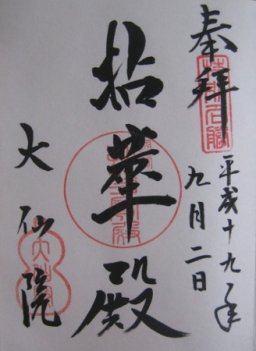 奉拜
平成十九年
九月二日
拈華殿
大仙院